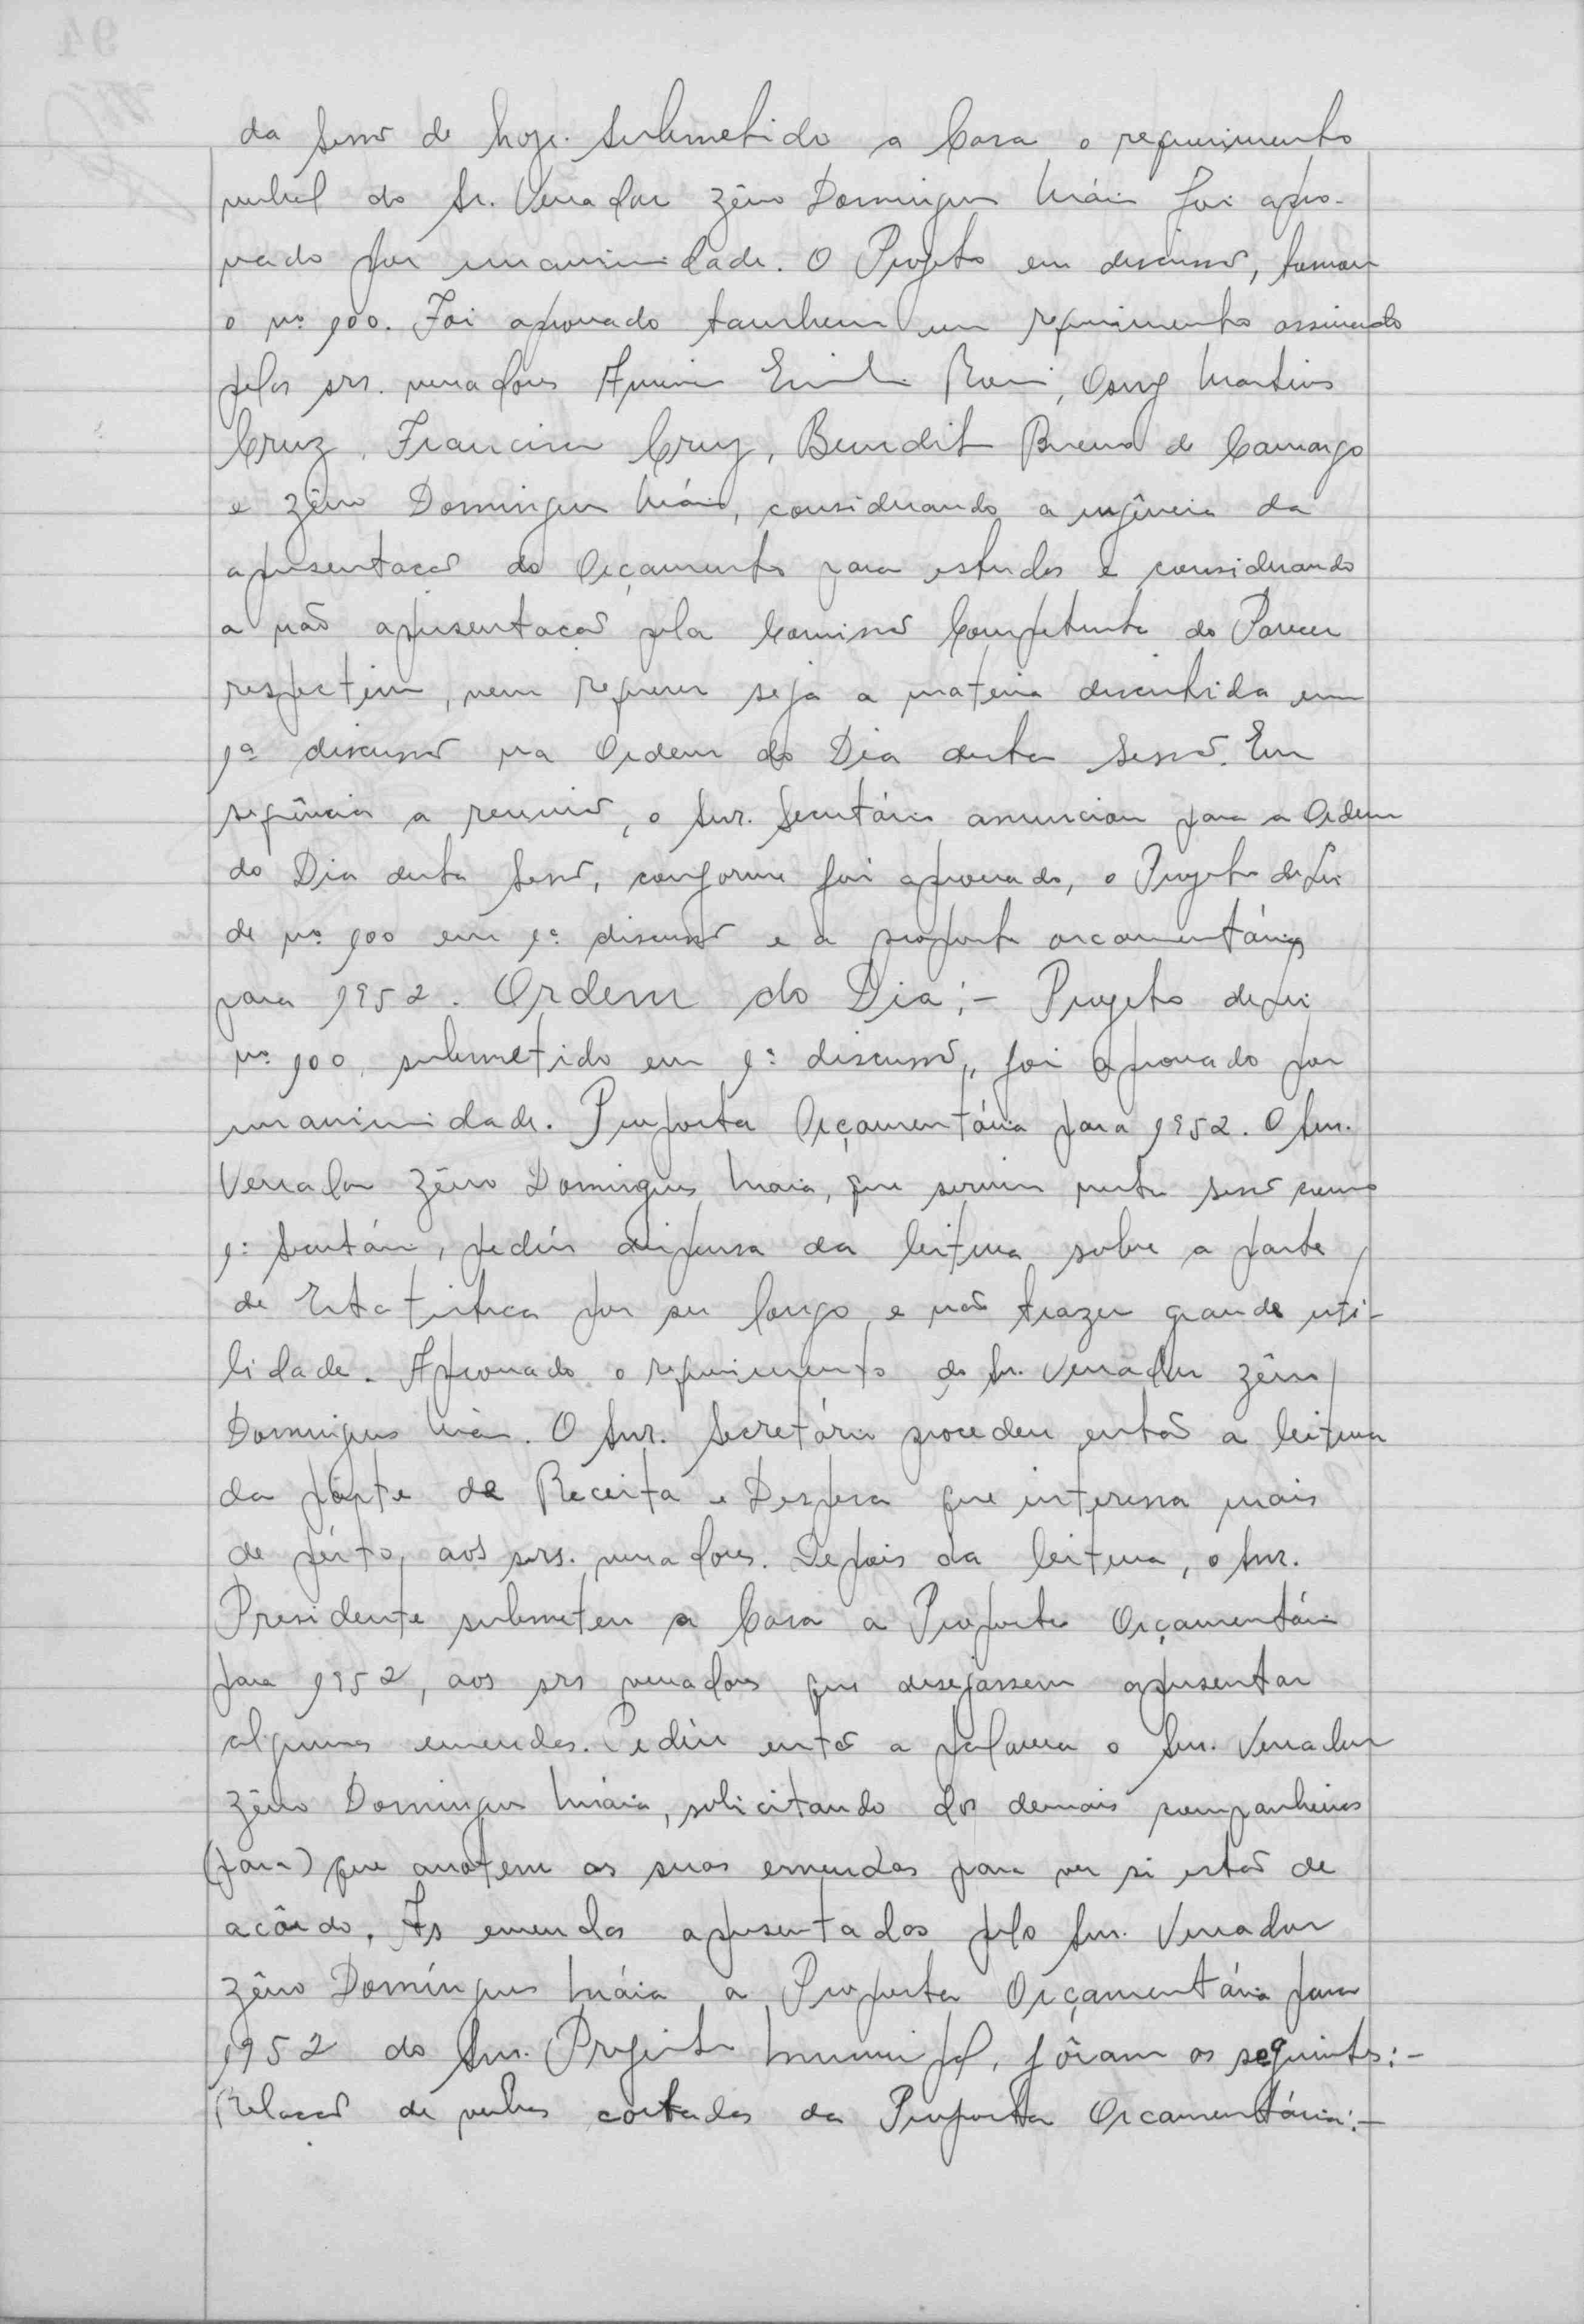 da Sessão de hoje. Submetido a Casa o requerimento
verbal do Sr. Vereador Zêno Domingues Máia foi apro-
vado por unanimidade. O Projeto em discussão, tomou
o nº 100. Foi aprovado tambem um requerimento assinado
pelos srs. vereadores Emilio Osny Martins
Cruz, Francisco Cruz, Benedito Bueno de Camargo
e Zêno Domingues Máia, considerando a urgência da
apresentação do Orçamento para estudos e considerando
a não apresentação pela Comissão Competente do Parecer
respectivo, vem requerer seja a materia discutida em
1ª discussão na Ordem do Dia desta Sessão. Em
seqüência a reunião, o Snr. Secretário anunciou para a Ordem
do Dia desta Sessão, conforme foi aprovado, o Projeto de Lei
de nº 100 em 1ª discussão e a proposta orçamentária
para 1952. Ordem do Dia:- Projeto de Lei
nº 100, submetido em 1ª discussão, foi aprovado por
unanimidade. Proposta Orçamentária para 1952. O Snr.
Vereador Zêno Domingues Maia, que serviu nesta sessão como
1º Secretário, pediu dispensa da leitura sobre a parte
de Estatistica por ser longo e não trazer grande uti-
lidade. Aprovado o requerimento do Sr. Vereador Zêno
Domingues Máia. O Snr. Secretário procedeu então a leitura
da parte de Receita e Despesa que interessa mais
de pérto, aos srs. vereadores. Depois da leitura, o Snr.
Presidente submeteu a Casa a Proposta Orçamentária
para 1952, aos srs vereadores que desejassem apresentar
algumas emendas. Pediu então a palavra o Snr. Vereador
Zêno Domingues Máia, solicitando dos demais companheiros
(para) que anotem as suas emendas para ver si estão de
acôrdo. As emendas apresentadas pelo Snr. Vereador
Zêno Domíngues Máia a Proposta Orçamentária para
1952 do Snr. Prefeito Municipal, fôram as seguintes:-
Relação de verbas cortadas da Proposta Orçamentária:-